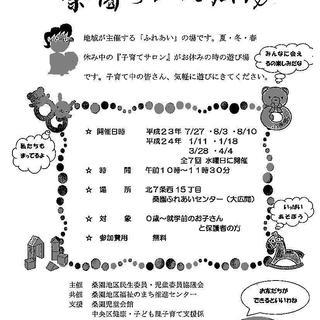 地域が主催する「ふれあい」の場です。夏・冬・春
休み中の『子育てサロン』がお休みの時の遊び場
です。子育て中の皆さん、気軽に遊びにきてください。
みんなに会え
るの楽しみだな
私たちも
まってるよ
☆ 開催日時 平成23年 7/27 ・8/3 ・8/10
平成24年 1/11 ・1/18
3/28 ・4/4
全7回 水曜日に開催
☆ 時 間 午前10時～11時30分
☆ 場 所 北7条西15丁目
桑園ふれあいセンター（大広間）
☆ 対 象 0歳～就学前のお子さん
と保護者の方
☆ 参加費用 無料
いっぱい
あそぼう
主催 桑園地区民生委員・児童委員協議会
共催 桑園地区福祉のまち推進センター
支援 桑園児童会館
中央区健康・子ども課子育て支援係
お友だちが
できるといいわね